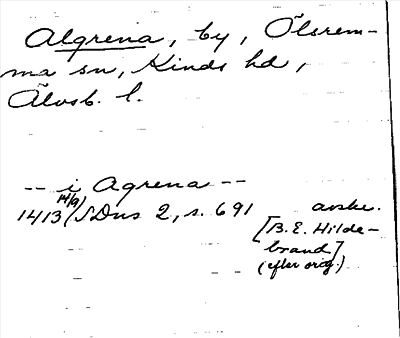 Algrena, by, Ölsrem-
ma sn, Kinds hd,
Älvsb. l.
-- i Agrena --
14/9
1413 (SDns 2, s. 691 avskr.
[B.E. Hilde-
brand]
(efter orig.)